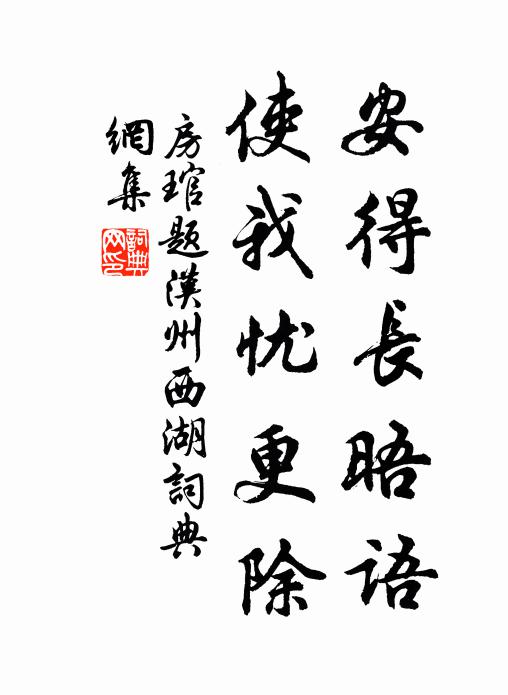 安得長晤语
使我忧更除
房琯题漢州西湖詞典
網集
詞典網印